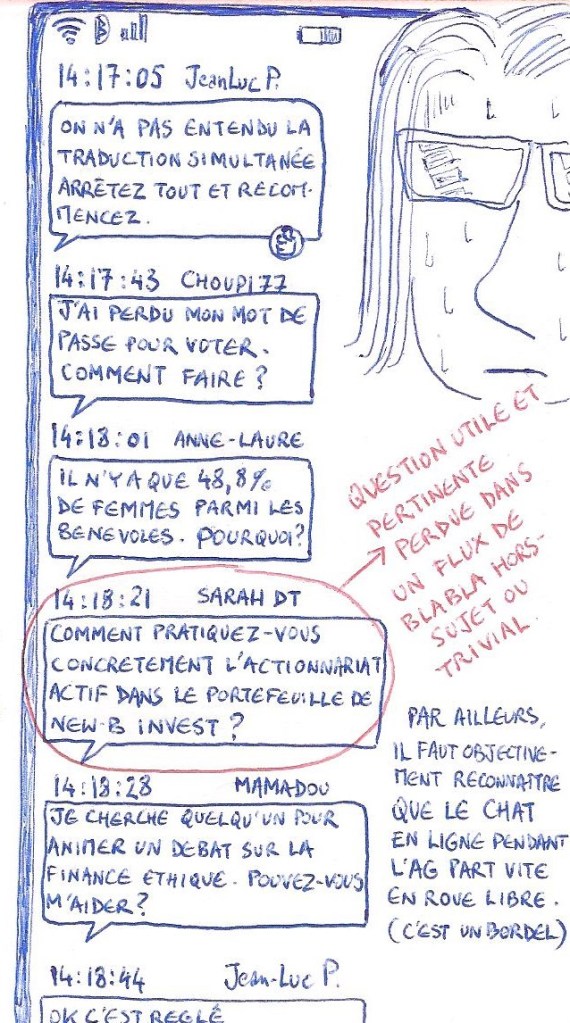 14:17:05 JeanLuc P.
ON N'A PAS ENTENDU LA
TRADUCTION SIMULTANÉE
ARRÊTEZ TOUT ET RECOM-
MENCEZ.
14:17:43 CHOUPI77
J'AI PERDU MON MOT DE
PASSE POUR VOTER.
COMMENT FAIRE ?
14:18:01 ANNE-LAURE
IL N'Y A QUE 48,8%
DE FEMMES PARMI LES
BENEVOLES. POURQUOI?
14:18:21 SARAH DT
COMMENT PRATIQUEZ-VOUS
CONCRETEMENT L'ACTIONNARIAT
ACTIF DANS LE PORTEFEUILLE DE
NEW-B INVEST ?
QUESTION UTILE ET
PERTINENTE
PERDUE DANS
UN FLUX DE
BLABLA HORS-
SUJET OU
TRIVIAL.
14:18:28 MAMADOU
JE CHERCHE QUELQU'UN POUR
ANIMER UN DEBAT SUR LA
FINANCE ETHIQUE. POUVEZ-VOUS
M'AIDER?
PAR AILLEURS,
IL FAUT OBJECTIVE-
MENT RECONNAITRE
QUE LE CHAT
EN LIGNE PENDANT
L'AG PART VITE
EN ROUE LIBRE.
(C'EST UN BORDEL)
14:18:44 Jean-Luc P.
OK C'EST REGLÉ